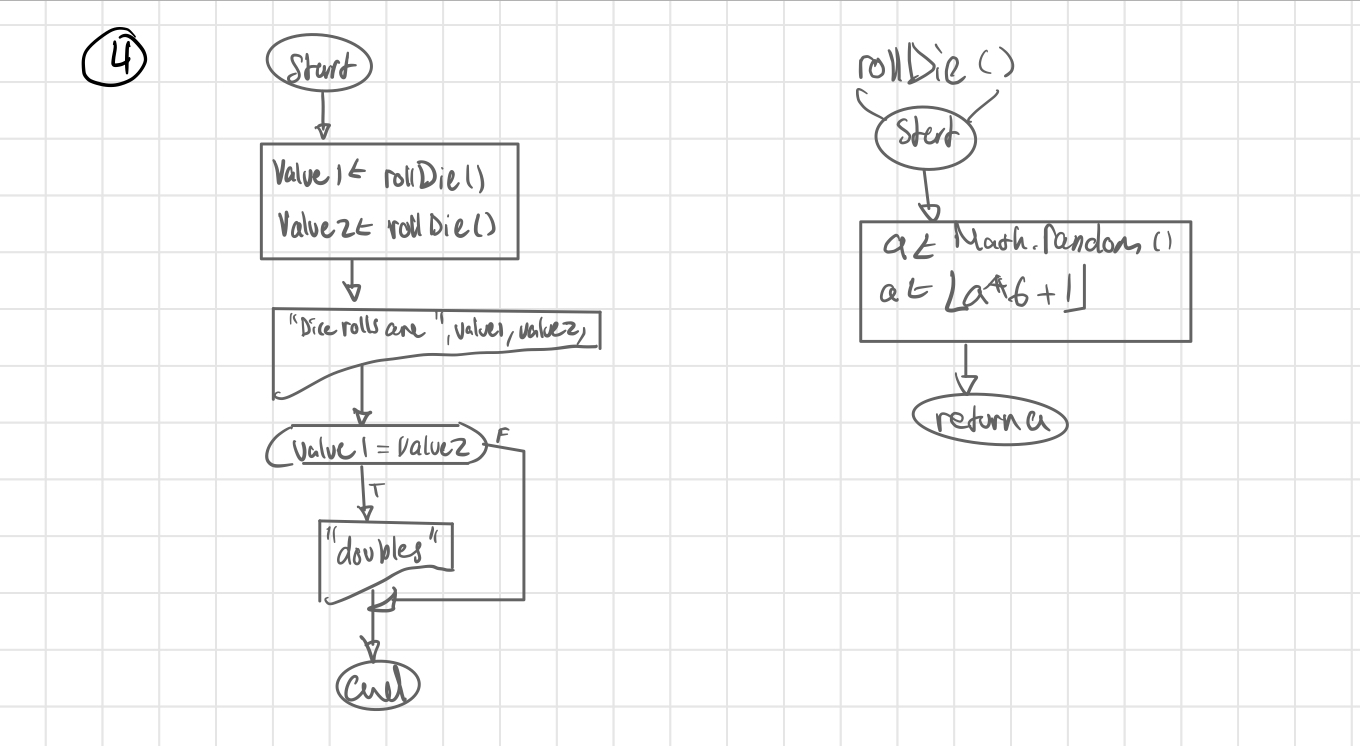 4
Start
Value1 ← rollDie()
Value2 ← rollDie()
"Dice rolls are ", value1, value2,
value1 = value2
F
T
"doubles"
end
rollDie()
Start
a ← Math.random()
a ← ⌊a*6+1⌋
return a